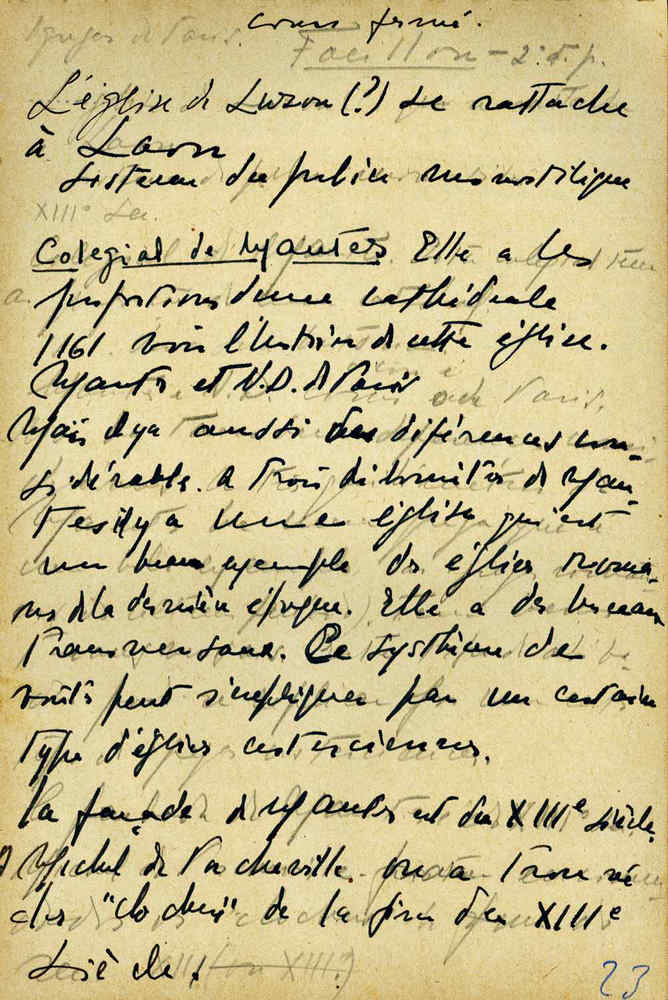 Cours fermé.
Focillon - 2
L'église de Luzon (?) se rattache
à Laon
du public
XIIIe
Colegial de Mantes Elle a les
proportions d'une cathédrale
1161 voir l'histoire de cette église.
Mantes et N.D. de Paris
Mais il y a aussi des diférences con-
sidérables. A trois kilomètres de Man-
tes il y a une église qui est
un beau exemple des églises roma-
nes de la dernière époque. Elle a des berceaux
transversaux. Ce systhème de
voûtes peut s'expliquer par un certain
type d'églises cisterciennes.
La façade de Mantes est du XIIIe siècle.
Michel de Vacheville. on a trouvé
des "clochers" de la fin du XIIIe
siècle.
23